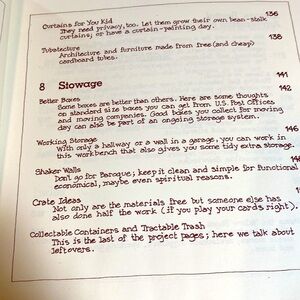 Curtains for You Kid 136
They need privacy, too. Let them grow their own bean-stalk
curtains; or have a curtain-painting day.
Tubatecture 138
Architecture and furniture made from free (and cheap)
cardboard tubes.
8 Stowage 141
Better Boxes 142
Some boxes are better than others. Here are some thoughts
on standard size boxes you can get from U.S. Post Offices
and moving companies. Good boxes you collect for moving
day can also be part of an ongoing storage system.
Working Storage
With only a hallway or a wall in a garage, you can work in
this workbench that also gives you some tidy extra storage.
Shaker Walls
Don't go for Baroque; keep it clean and simple for functional
economical, maybe even spiritual reasons.
Crate Ideas
Not only are the materials free but someone else has
also done half the work (if you play your cards right).
Collectable Containers and Tractable Trash
This is the last of the project pages; here we talk about
leftovers.